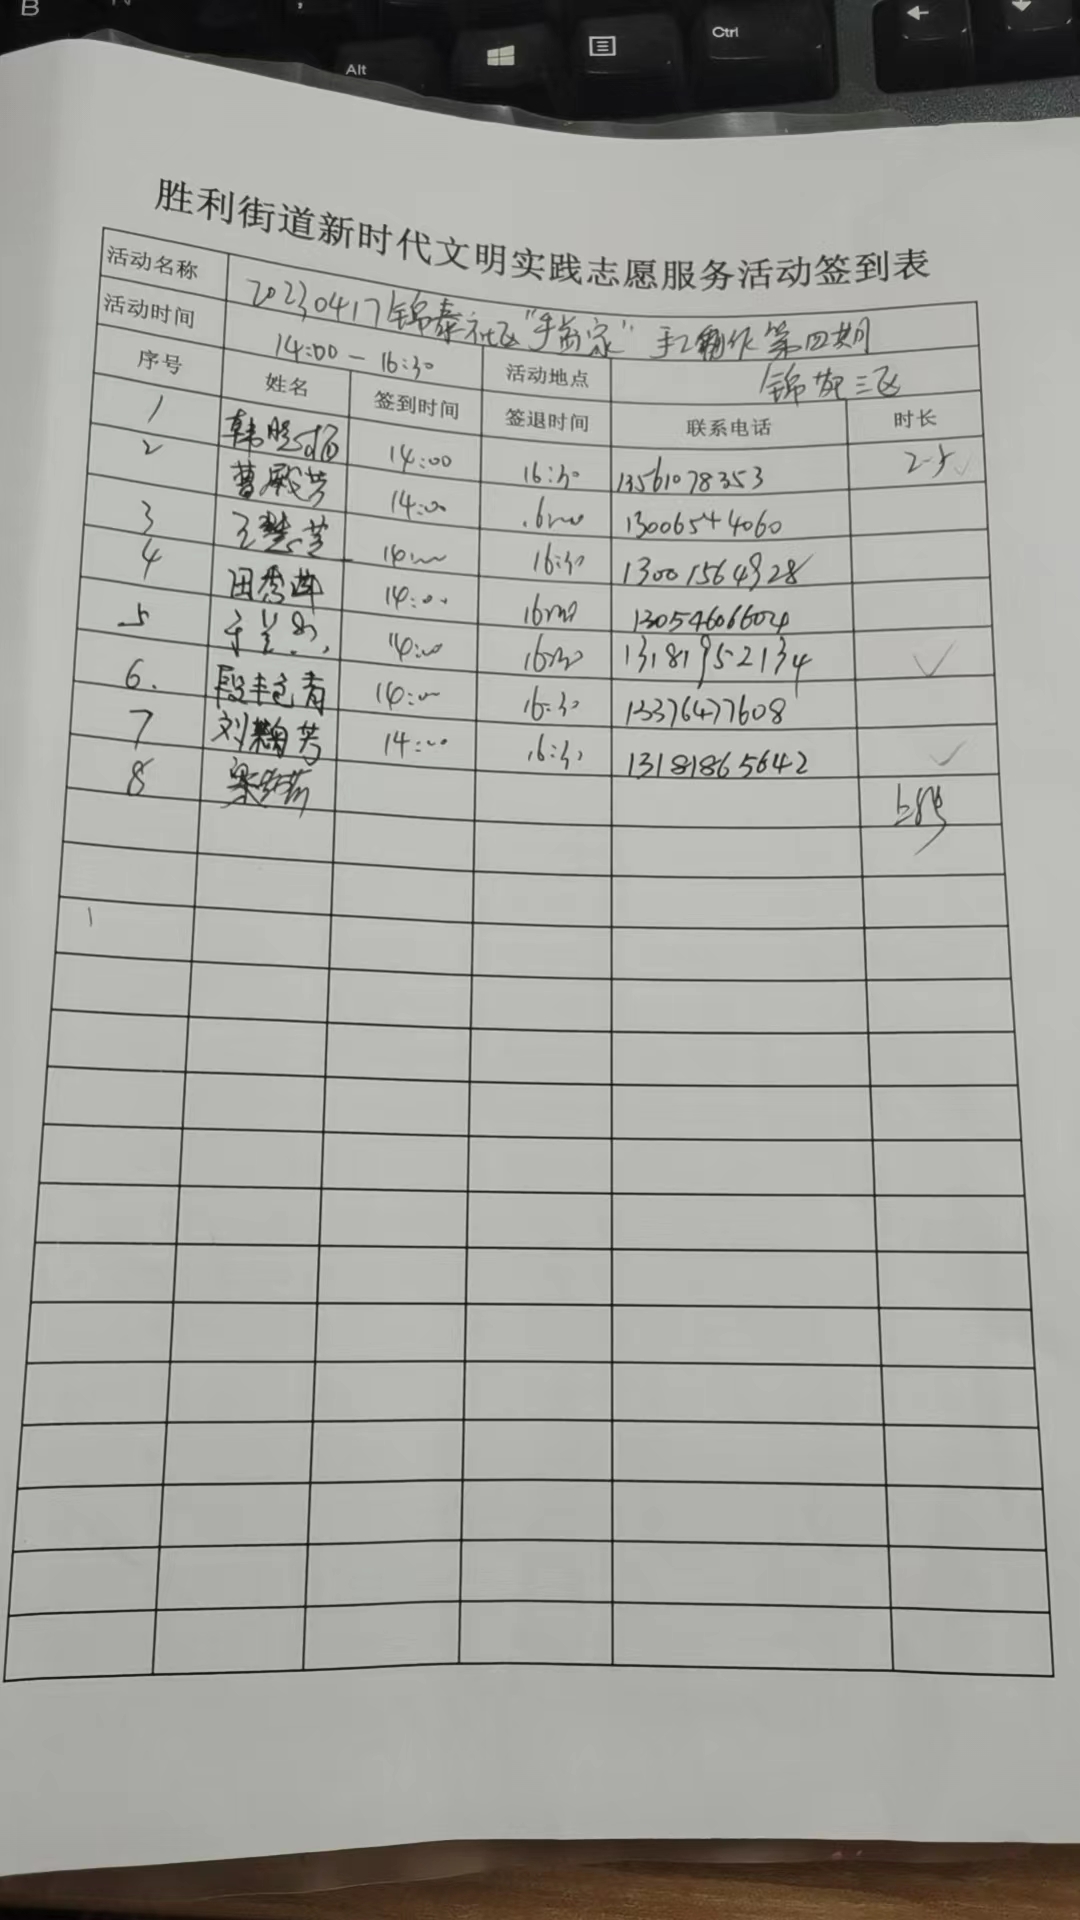 B
Alt
Ctrl
胜利街道新时代文明实践志愿服务活动签到表
活动名称 20230417锦泰社区"手前家"手工制作第四期
活动时间 14:00-16:30 活动地点 锦苑三区
序号 姓名 签到时间 签退时间 联系电话 时长
1 韩晓 14:00 16:30 13561078353 2.5
2 曹殿芳 14:00 13006544060
3 王慧兰 14:00 16:30 13001564928
4 田秀莲 14:00 16:30 13054606604
5 于兰 14:00 16:30 13181952134
6. 段丰 青 14:00 16:30 13376477608
7 刘菊芳 14:00 16:30 13181865642
8